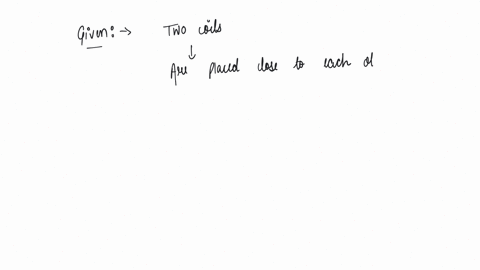 Given:→ Two coils
↓
Are placed close to each ot